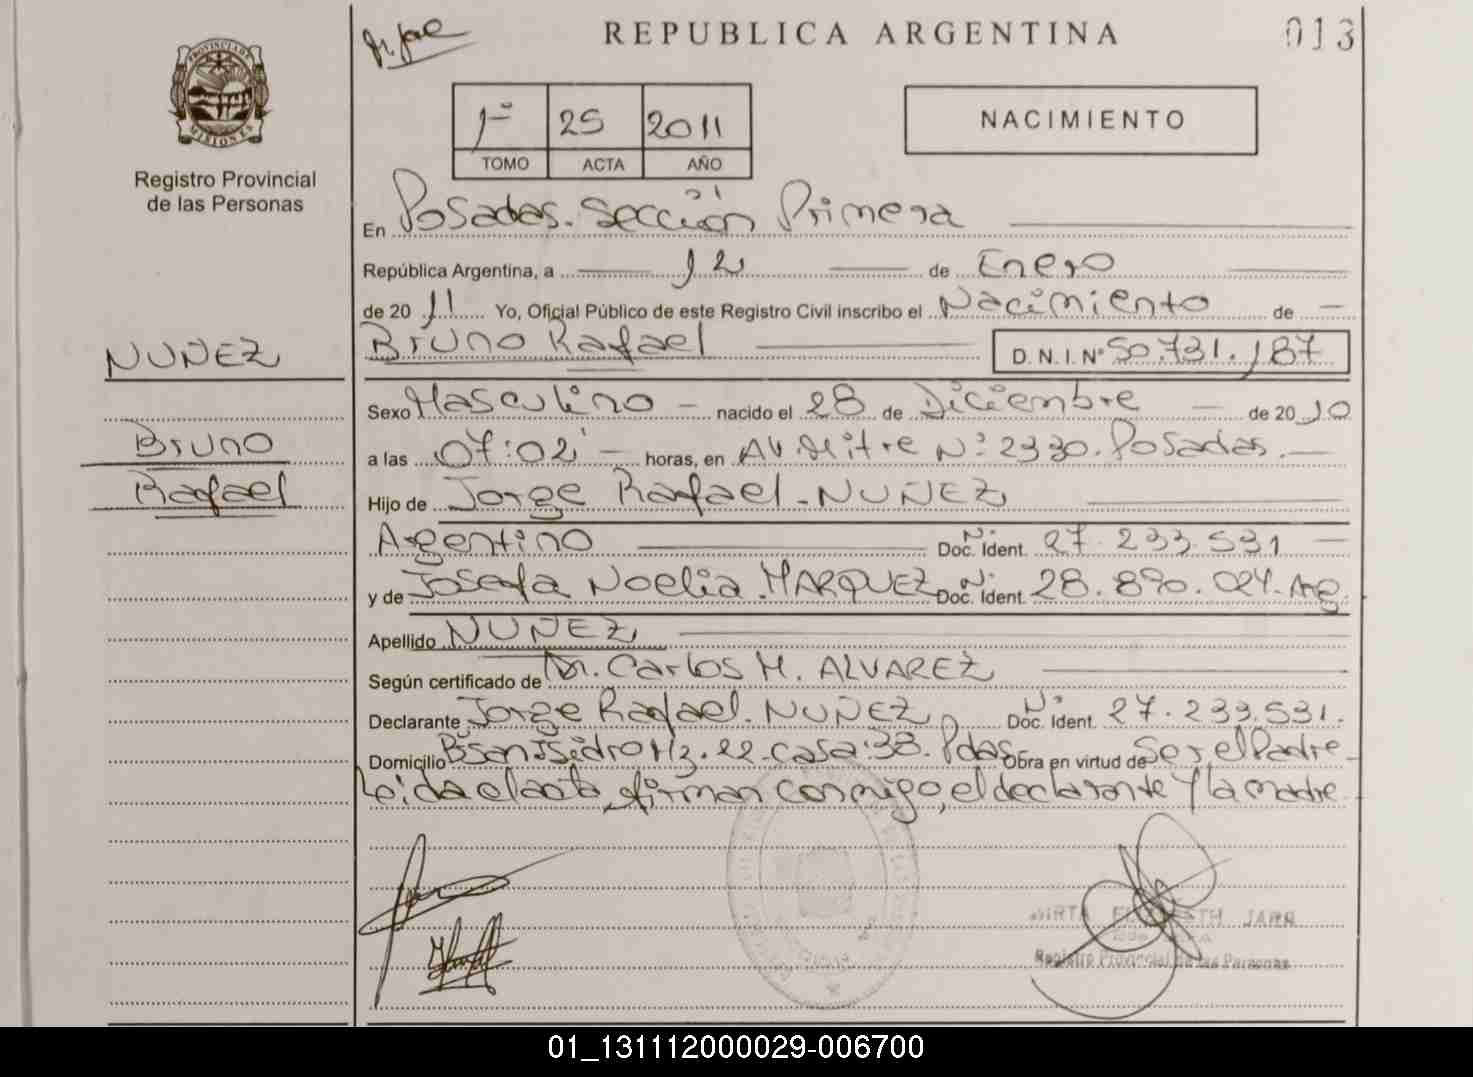 REPUBLICA ARGENTINA
013
PROVINCIA DE MISIONES
Registro Provincial
de las Personas
1º 25 2011
TOMO ACTA AÑO
NACIMIENTO
En Posadas. Sección Primera
República Argentina, a 12 de Enero
de 2011 Yo, Oficial Público de este Registro Civil inscribo el Nacimiento de
Bruno Rafael D.N.I.Nº 50.731.187
NUÑEZ
Bruno
Rafael
Sexo Masculino - nacido el 28 de Diciembre - de 2010
a las 07:02 - horas, en Av. Mitre Nº 2330. Posadas. -
Hijo de Jorge Rafael - NUÑEZ
Argentino Nº Doc. Ident. 27.233.531 -
y de Josefa Noelia MARQUEZ Nº Doc. Ident. 28.890.024. Arg.
Apellido NUÑEZ
Según certificado de Dr. Carlos M. ALVAREZ
Declarante Jorge Rafael. NUÑEZ Nº Doc. Ident. 27.233.531.
Domicilio Bº San Isidro Mz. 22 - casa: 38. Pdas Obra en virtud de Ser el Padre -
Leida el acta, firman conmigo, el declarante y la madre
MIRTA ELIZABETH JARA
Registro Provincial de las Personas
01_131112000029-006700